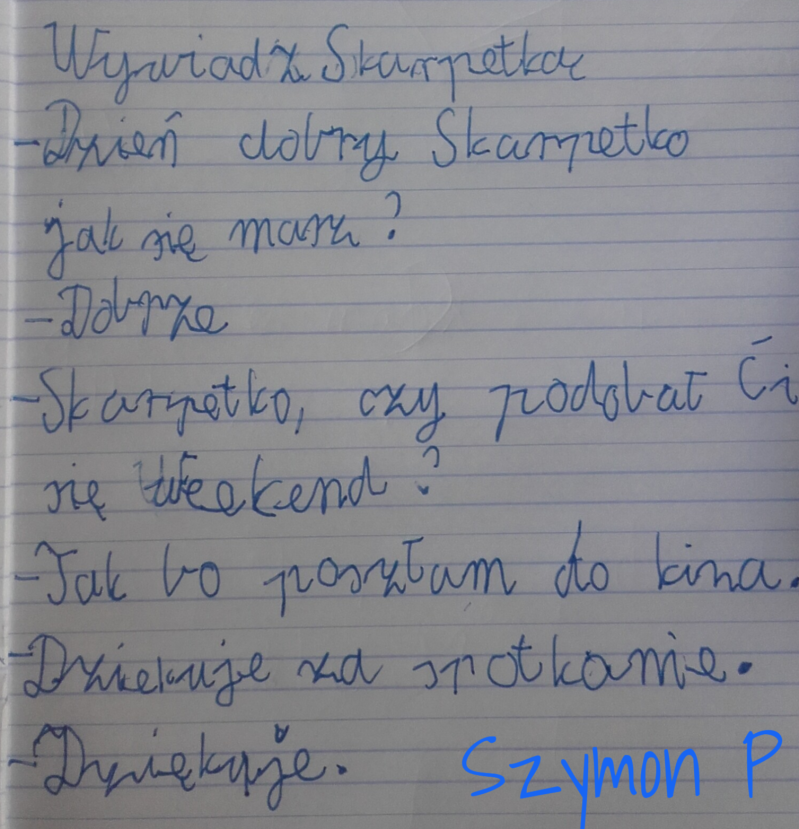 Wywiad z Skarpetką
-Dzień dobry Skarpetko
jak się masz?
-Dobrze
-Skarpetko, czy podobał Ci
się Weekend?
-Tak bo poszłam do kina.
-Dziekuje za spotkanie.
-Dziękuje.
Szymon P